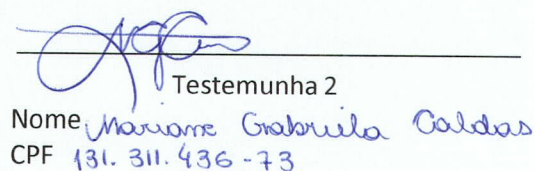 Testemunha 2
Nome Mariane Gabriela Caldas
CPF 131.311.436-73